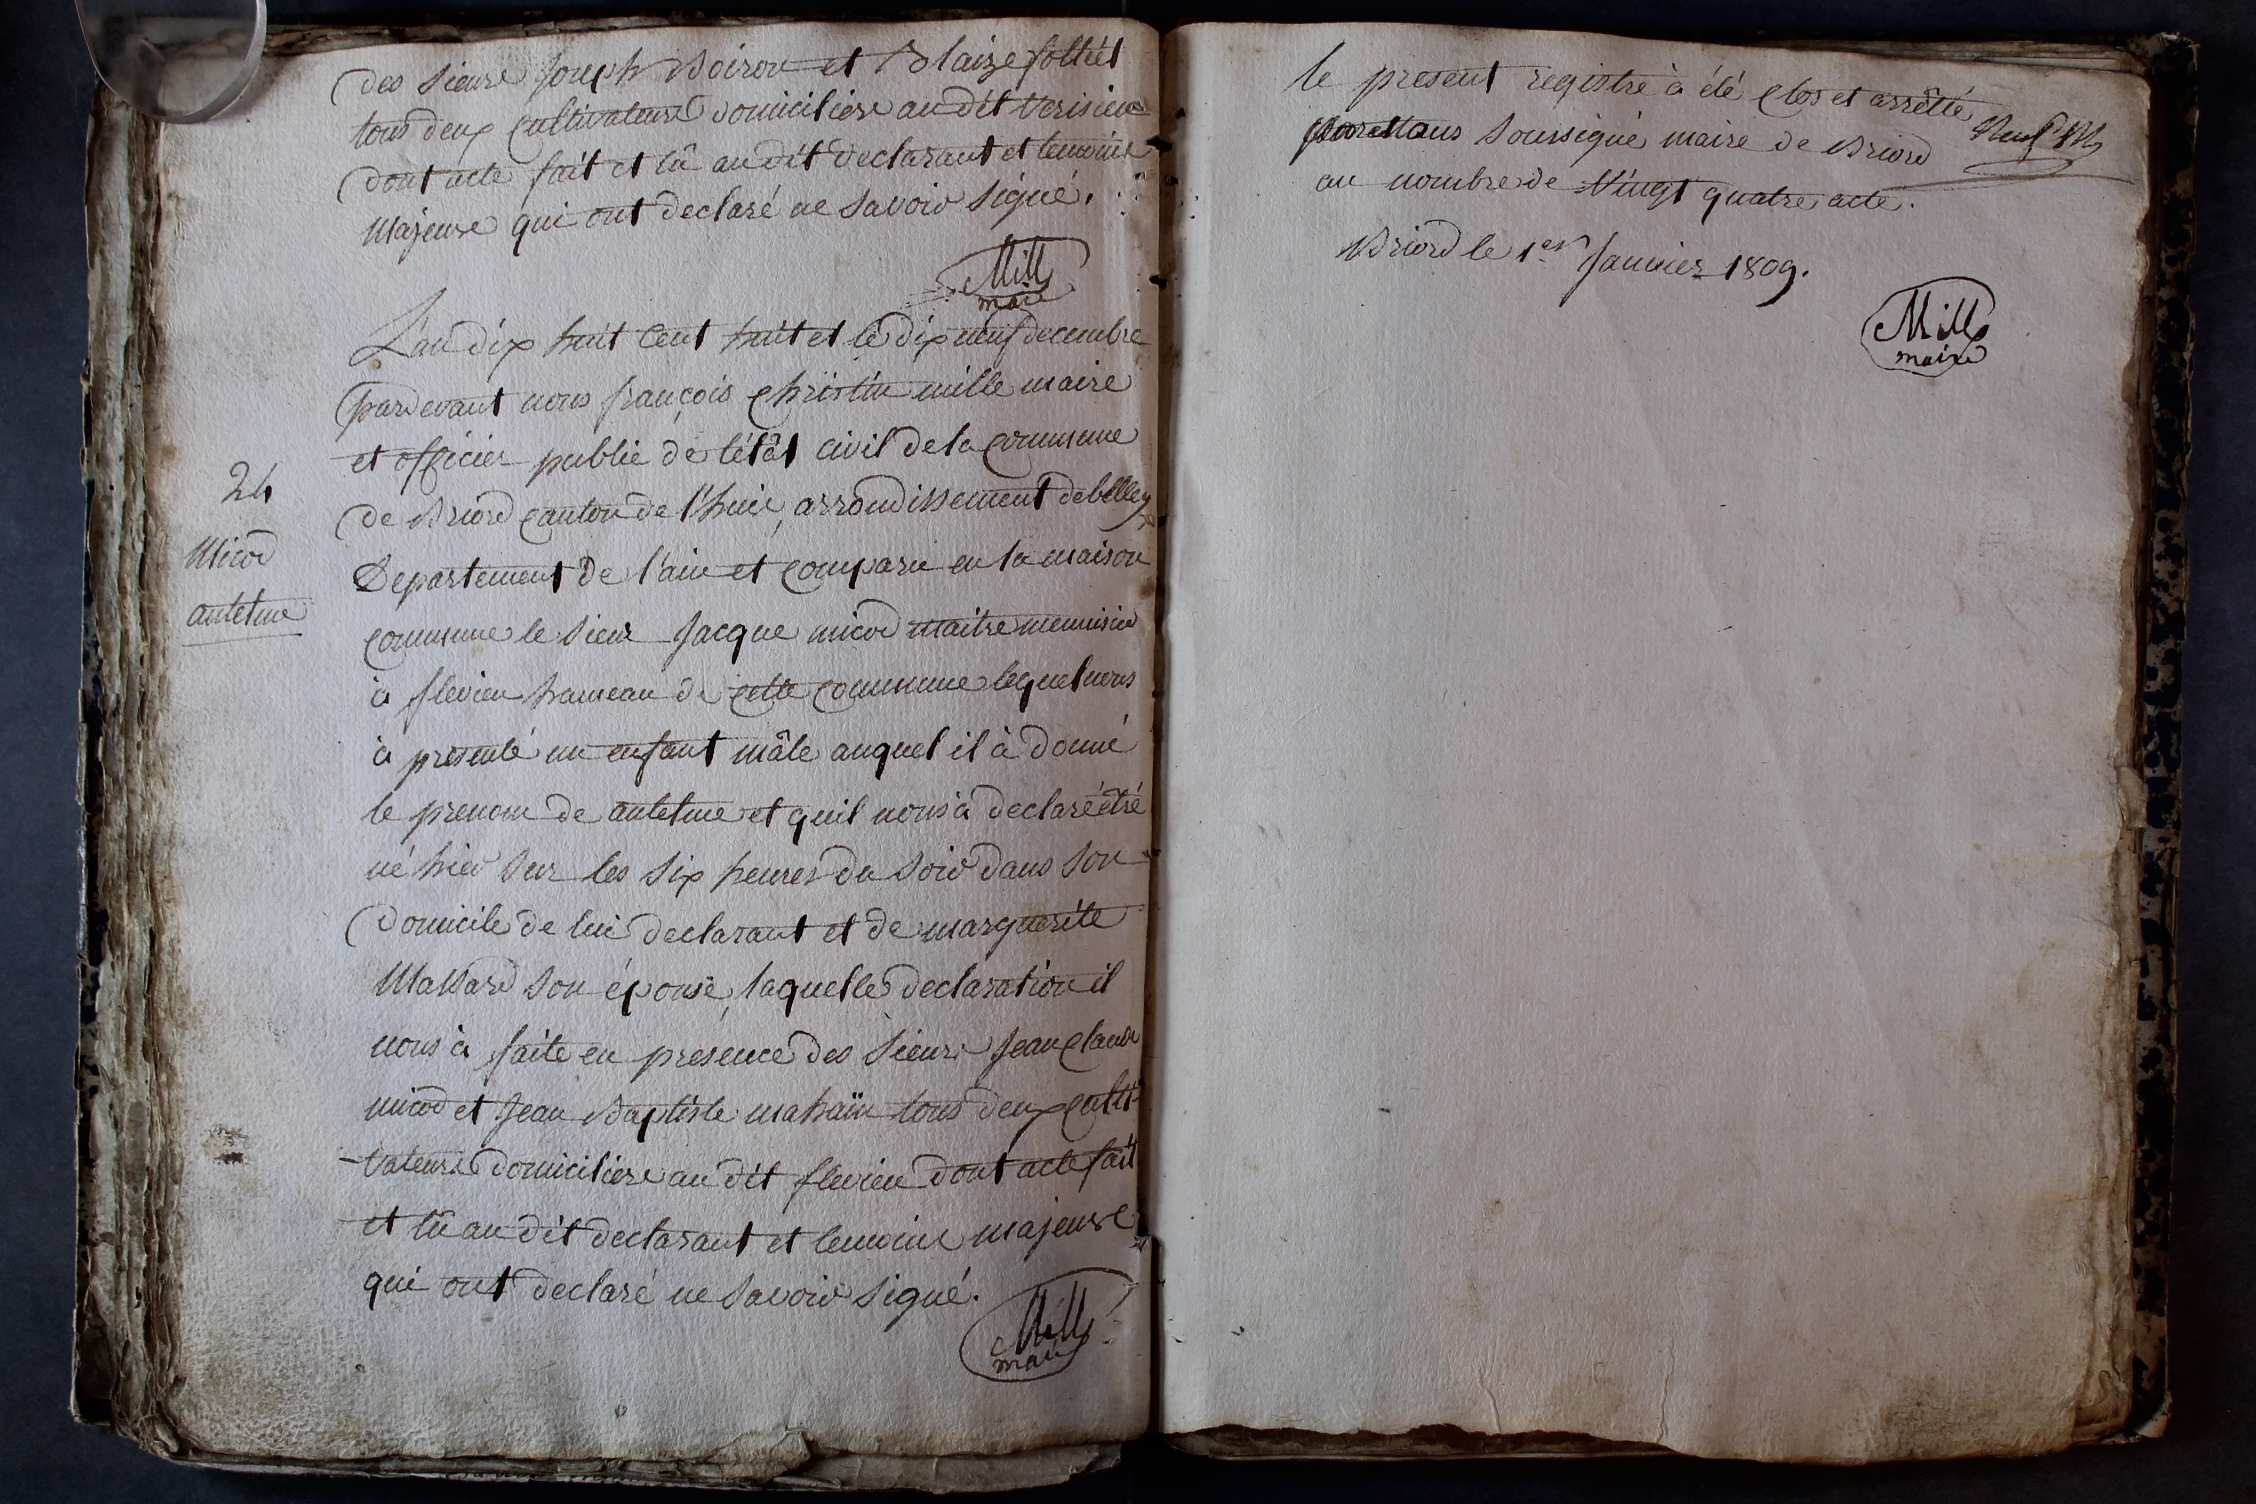 des sieurs Joseph Boiron et Blaize folliet
tous deux cultivateurs domiciliers au dit Verisieu
dont acte fait et lû au dit declarant et temoins
majeurs qui ont declaré ne savoir signé.
Mille
maire
L'an dix huit cent huit et le dix neuf decembre
pardevant nous françois christin mille maire
et officier public de l'état civil de la commune
de Briord canton de l'huis, arrondissement de belley
Departement de l'ain et comparu en la maison
commune le sieur Jacque micod maitre menuisier
à flevieu hameau de cette commune lequel nous
à presenté un enfant mâle auquel il à donné
le prenom de antelme et quil nous à declaré étré
né hier sur les six heures du soir dans son
domicile de lui declarant et de marguerite
Massard son épouse, laquelle declaration il
nous à faite en presence des sieurs Jean claude
micod et Jean Baptiste mahaïn tous deux culti
-vateurs domiciliers au dit flevieu dont acte fait
et lû au dit declarant et temoins majeurs
qui ont declaré ne savoir signé.
Mille
maire
24
Micod
antelme
le present registre à été clos et arrêtté
par Nous soussigné maire de Briord
au nombre de Vingt quatre acte.
Briord le 1er Janvier 1809.
Mille
maire